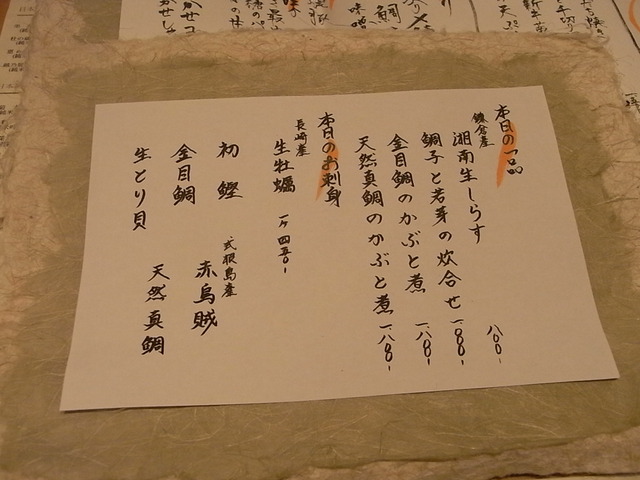 本日の一品
鎌倉産
湘南生しらす 八〇〇-
鯛子と若芽の炊合せ 一、〇〇〇-
金目鯛のかぶと煮 一、八〇〇-
天然真鯛のかぶと煮 一、八〇〇-
本日のお刺身
長崎産
生牡蠣 一ヶ四五〇-
初鰹
式根島産
赤烏賊
金目鯛
天然真鯛
生とり貝